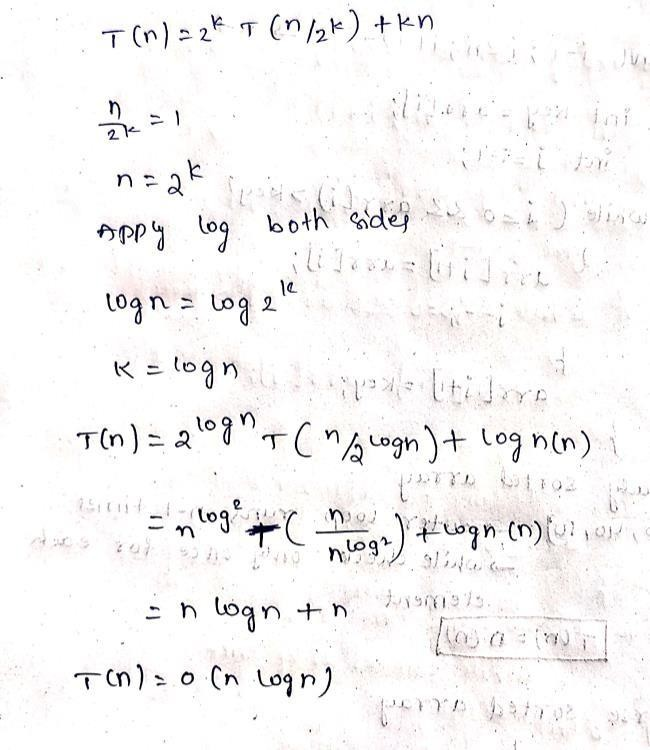 T(n) = 2^k T(n/2^k) + kn
n/2^k = 1
n = 2^k
Apply log both sides
log n = log 2^k
K = log n
T(n) = 2^log n T(n/2^log n) + log n(n)
= n^log 2 T(n/n^log 2) + log n (n)
= n log n + n
T(n) = O(n log n)